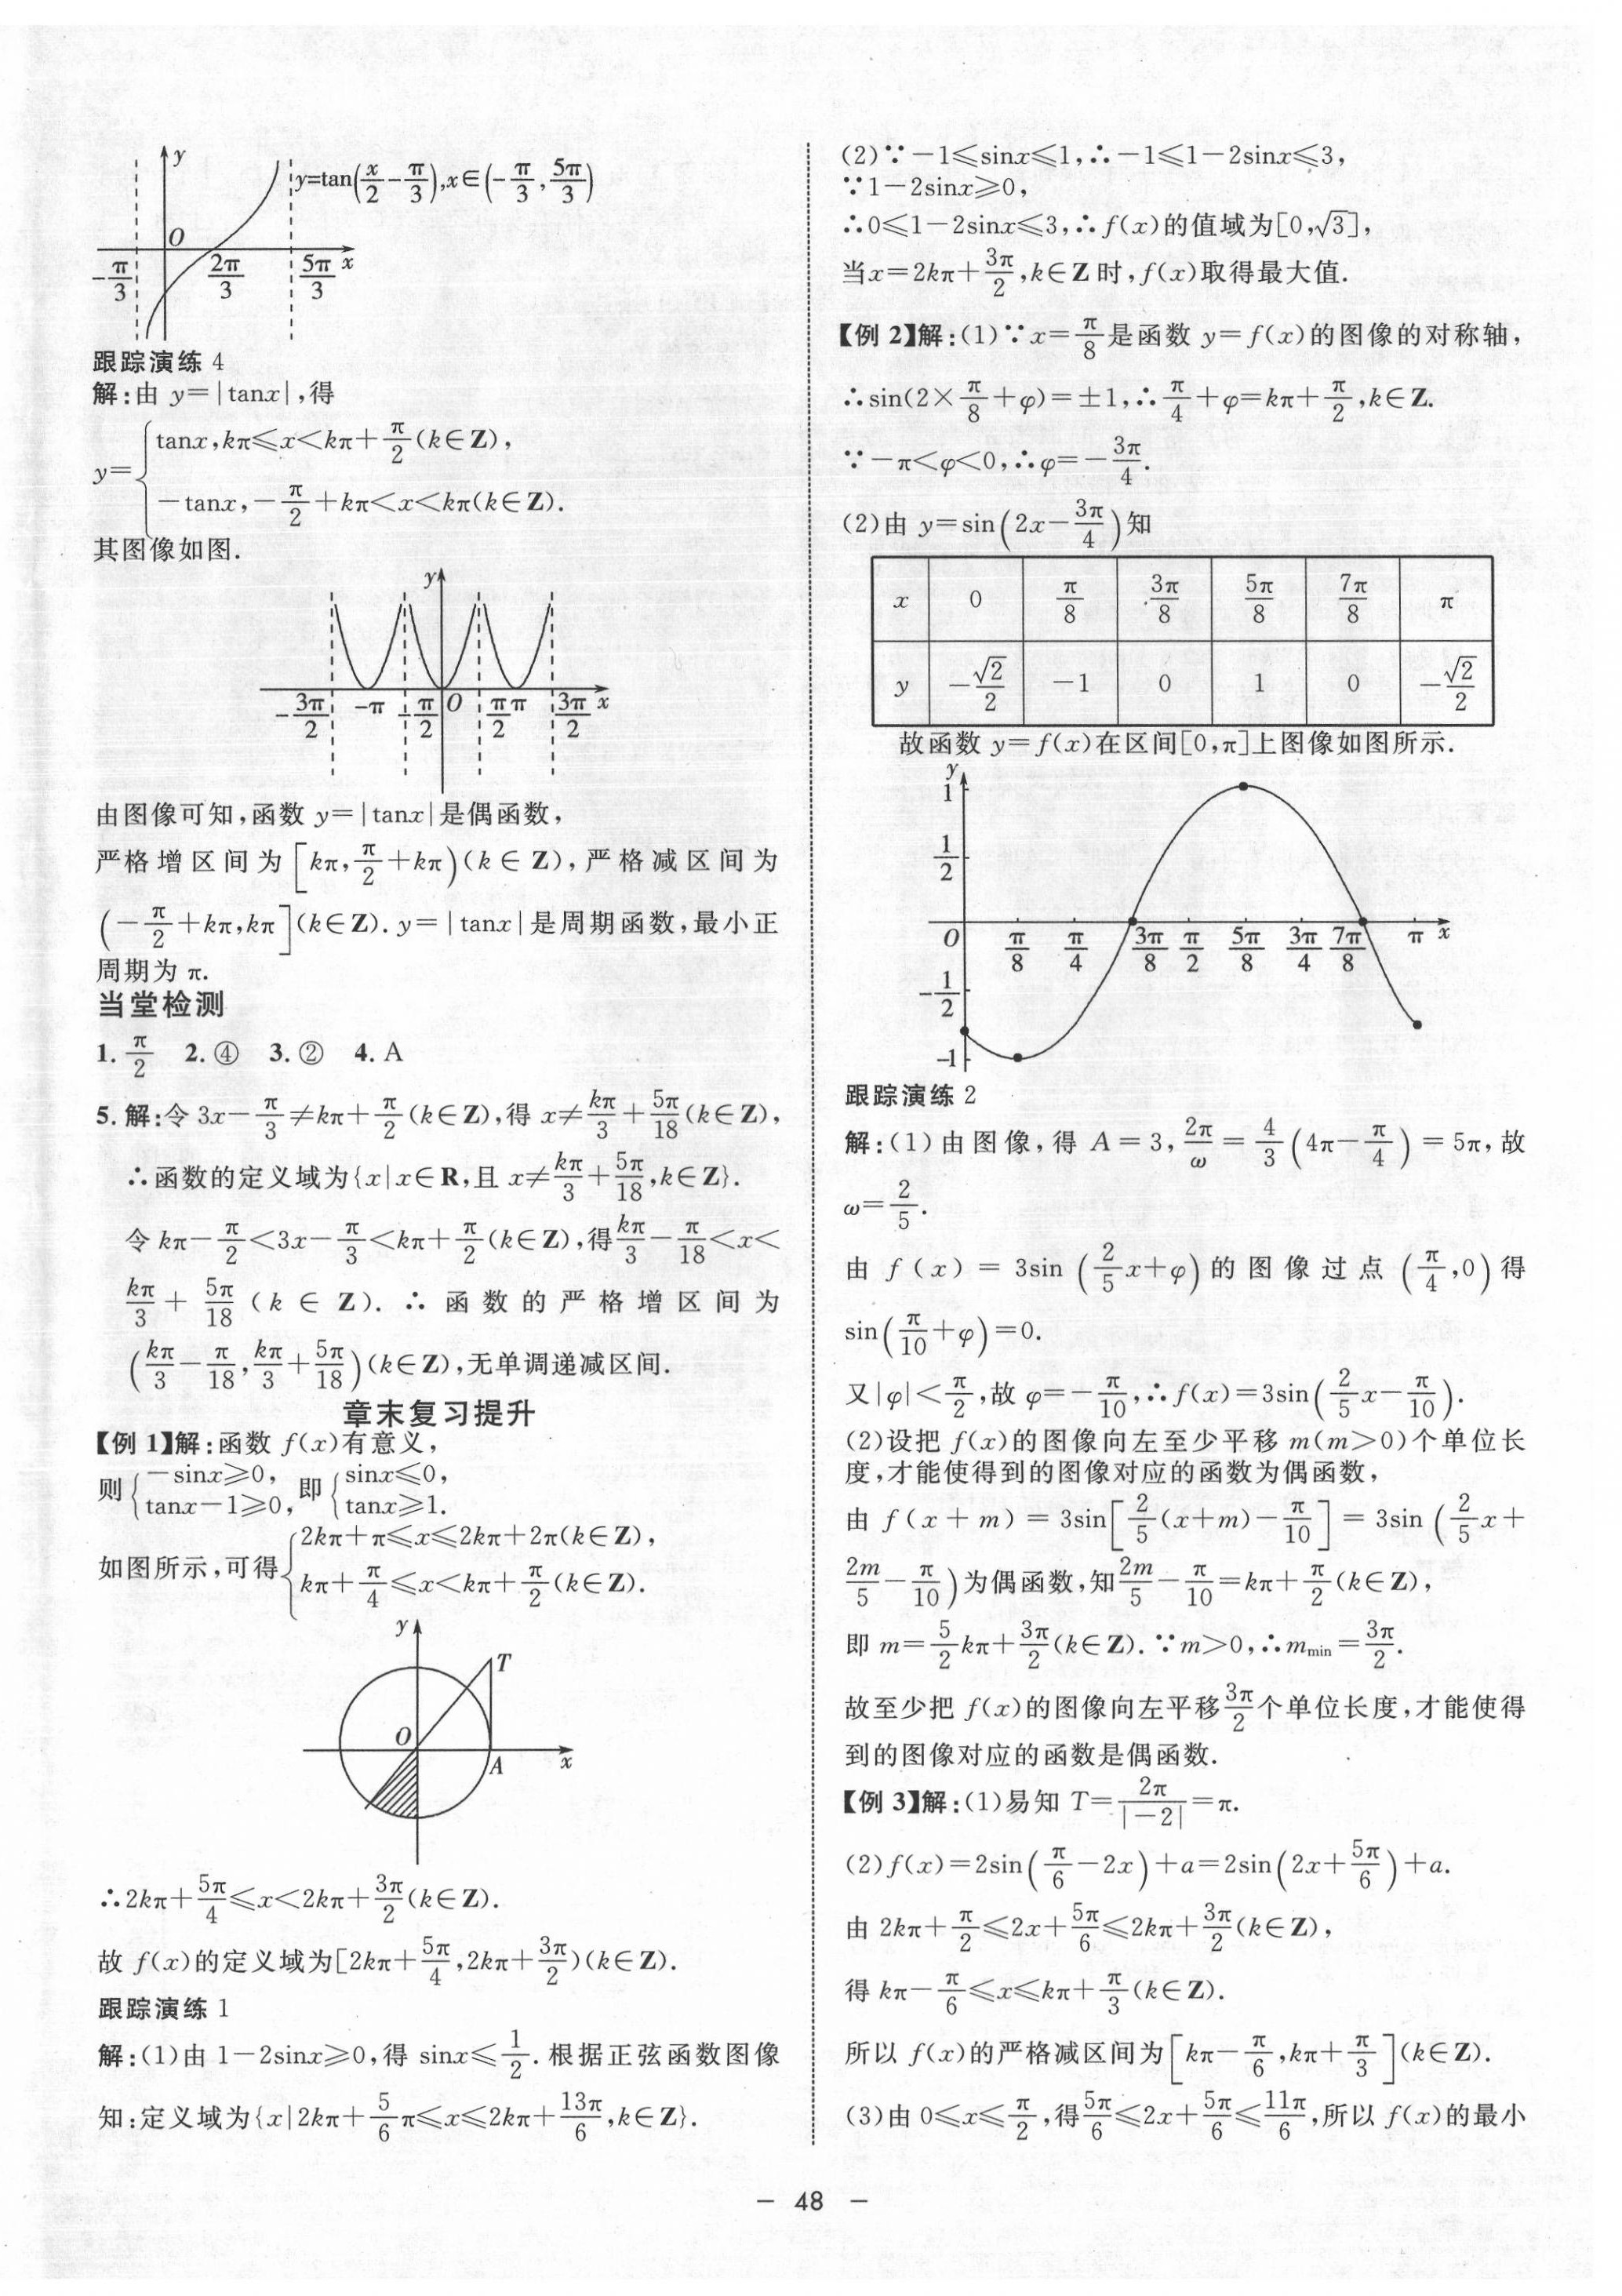 y
y=tan(x/2-π/3),x∈(-π/3,5π/3)
O
-π/3 2π/3 5π/3 x
跟踪演练 4
解:由 y=|tanx|,得
y={tanx,kπ≤x<kπ+π/2(k∈Z),
-tanx,-π/2+kπ<x<kπ(k∈Z).
其图像如图.
y
-3π/2 -π -π/2 O π/2 π 3π/2 x
由图像可知,函数 y=|tanx|是偶函数,
严格增区间为[kπ,π/2+kπ)(k∈Z),严格减区间为
(-π/2+kπ,kπ](k∈Z).y=|tanx|是周期函数,最小正
周期为 π.
当堂检测
1.π/2 2.④ 3.② 4.A
5.解:令 3x-π/3≠kπ+π/2(k∈Z),得 x≠kπ/3+5π/18(k∈Z),
∴函数的定义域为{x|x∈R,且 x≠kπ/3+5π/18,k∈Z}.
令 kπ-π/2<3x-π/3<kπ+π/2(k∈Z),得kπ/3-π/18<x<
kπ/3+5π/18(k∈Z).∴函数的严格增区间为
(kπ/3-π/18,kπ/3+5π/18)(k∈Z),无单调递减区间.
章末复习提升
【例 1】解:函数 f(x)有意义,
则{-sinx≥0,tanx-1≥0,即{sinx≤0,tanx≥1.
如图所示,可得{2kπ+π≤x≤2kπ+2π(k∈Z),
kπ+π/4≤x<kπ+π/2(k∈Z).
y
T
O
A x
∴2kπ+5π/4≤x<2kπ+3π/2(k∈Z).
故 f(x)的定义域为[2kπ+5π/4,2kπ+3π/2)(k∈Z).
跟踪演练 1
解:(1)由 1-2sinx≥0,得 sinx≤1/2.根据正弦函数图像
知:定义域为{x|2kπ+5/6π≤x≤2kπ+13π/6,k∈Z}.
(2)∵-1≤sinx≤1,∴-1≤1-2sinx≤3,
∵1-2sinx≥0,
∴0≤1-2sinx≤3,∴f(x)的值域为[0,√3],
当x=2kπ+3π/2,k∈Z 时,f(x)取得最大值.
【例 2】解:(1)∵x=π/8是函数 y=f(x)的图像的对称轴,
∴sin(2×π/8+φ)=±1,∴π/4+φ=kπ+π/2,k∈Z.
∵-π<φ<0,∴φ=-3π/4.
(2)由 y=sin(2x-3π/4)知
x 0 π/8 3π/8 5π/8 7π/8 π
y -√2/2 -1 0 1 0 -√2/2
故函数 y=f(x)在区间[0,π]上图像如图所示.
y
1
1/2
O π/8 π/4 3π/8 π/2 5π/8 3π/4 7π/8 π x
-1/2
-1
跟踪演练 2
解:(1)由图像,得 A=3,2π/ω=4/3(4π-π/4)=5π,故
ω=2/5.
由 f(x)=3sin(2/5x+φ)的图像过点(π/4,0)得
sin(π/10+φ)=0.
又|φ|<π/2,故 φ=-π/10,∴f(x)=3sin(2/5x-π/10).
(2)设把 f(x)的图像向左至少平移 m(m>0)个单位长
度,才能使得到的图像对应的函数为偶函数,
由 f(x+m)=3sin[2/5(x+m)-π/10]=3sin(2/5x+
2m/5-π/10)为偶函数,知2m/5-π/10=kπ+π/2(k∈Z),
即 m=5/2kπ+3π/2(k∈Z).∵m>0,∴mmin=3π/2.
故至少把 f(x)的图像向左平移3π/2个单位长度,才能使得
到的图像对应的函数是偶函数.
【例 3】解:(1)易知 T=2π/|-2|=π.
(2)f(x)=2sin(π/6-2x)+a=2sin(2x+5π/6)+a.
由 2kπ+π/2≤2x+5π/6≤2kπ+3π/2(k∈Z),
得 kπ-π/6≤x≤kπ+π/3(k∈Z).
所以 f(x)的严格减区间为[kπ-π/6,kπ+π/3](k∈Z).
(3)由 0≤x≤π/2,得5π/6≤2x+5π/6≤11π/6,所以 f(x)的最小
— 48 —